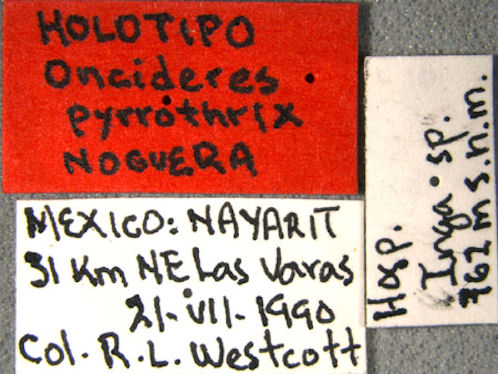 HOLOTIPO
Oncideres
pyrrothrix
NOGUERA
MEXICO: NAYARIT
31 Km NE Las Varas
21-VII-1990
Col. R.L. Westcott
Hosp.
Inga sp.
762 m s.n.m.